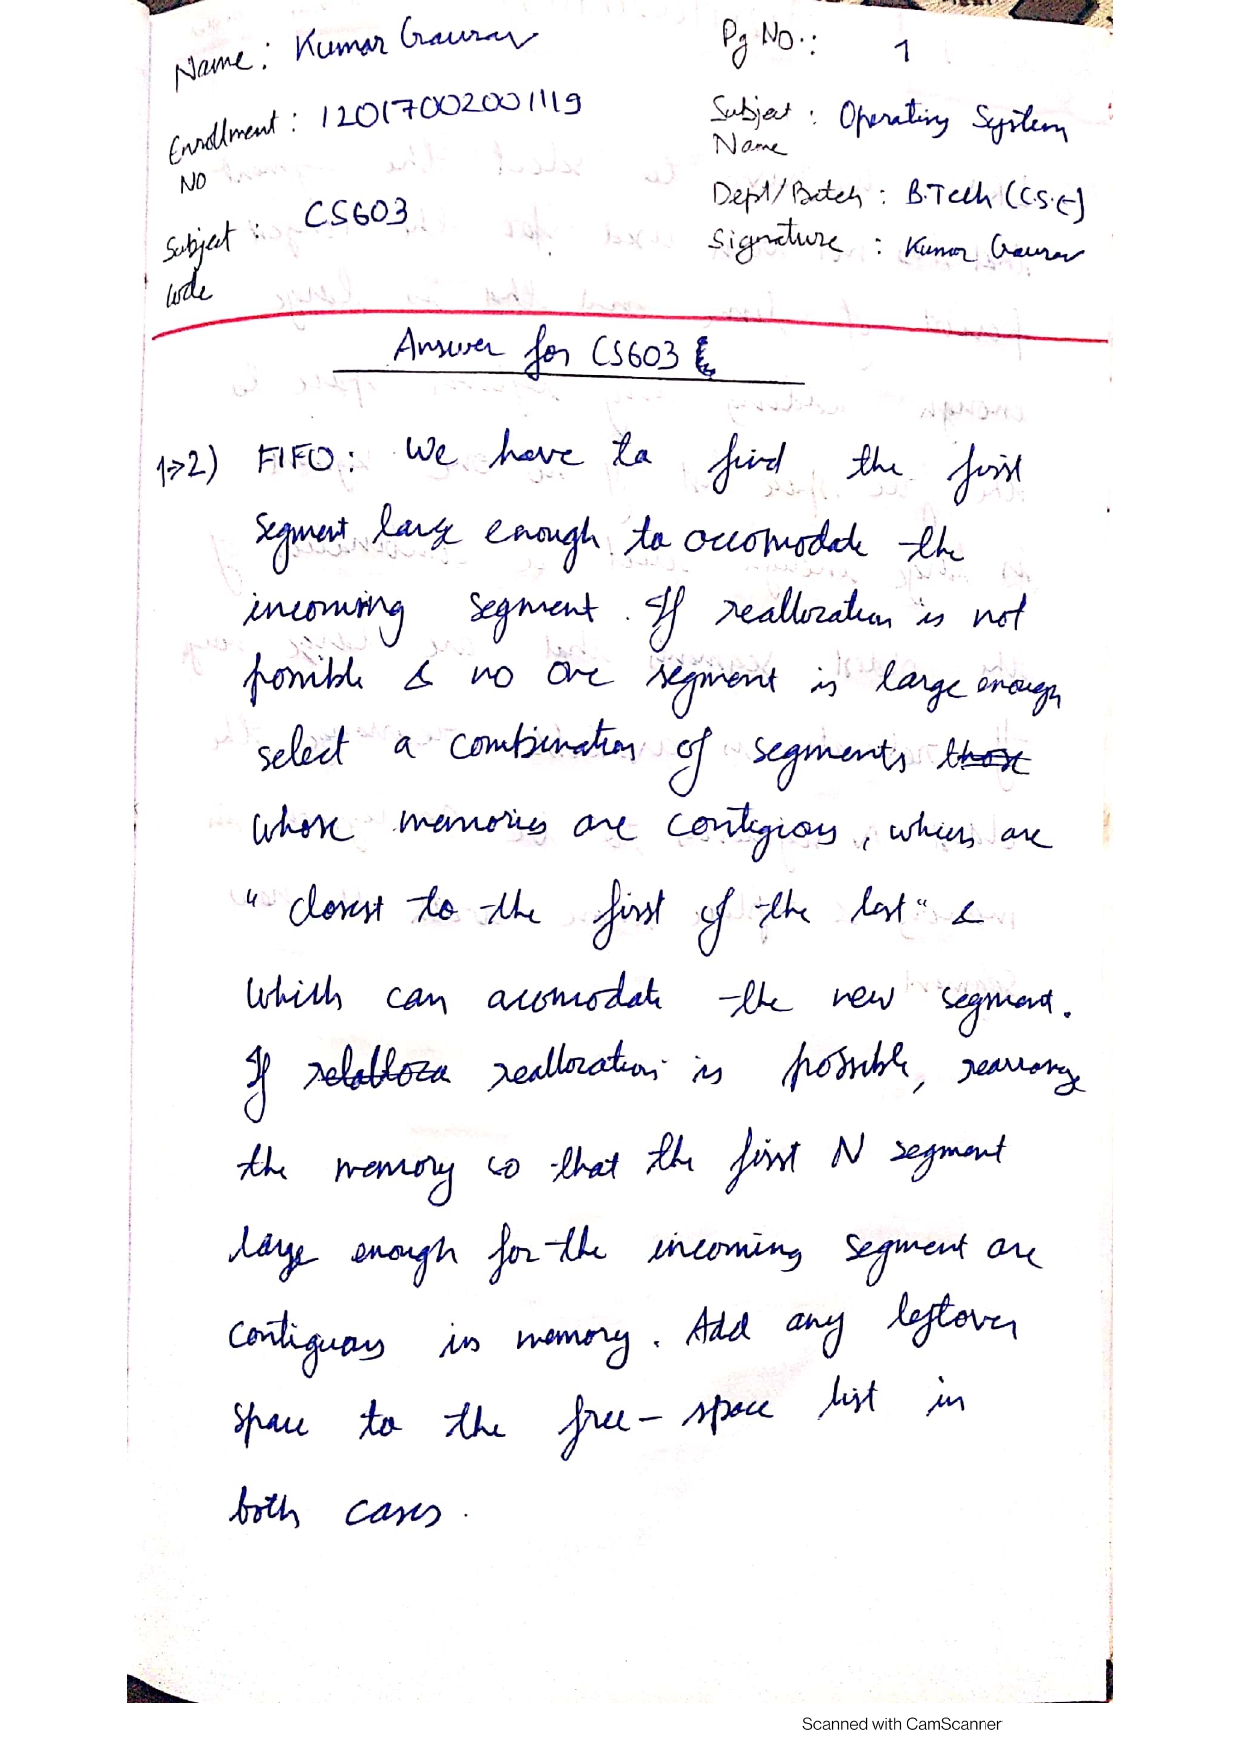 Name: Kumar Gaurav
Pg No.: 1
Enrollment No: 12017002001119
Subject Name: Operating System
Subject Code: CS603
Dept/Batch: B.Tech (C.S.E)
Signature: Kumar Gaurav
Answer for CS603
1→2) FIFO: We have to find the first
segment large enough to accomodate the
incoming segment. If reallocation is not
possible & no one segment is large enough
select a combination of segments those
whose memories are contigious, which are
"closest to the first of the list" &
which can acomodate the new segment.
If relalloca reallocation is possible, rearrange
the memory so that the first N segment
large enough for the incoming segment are
contiguous in memory. Add any leftover
space to the free-space list in
both cases.
Scanned with CamScanner